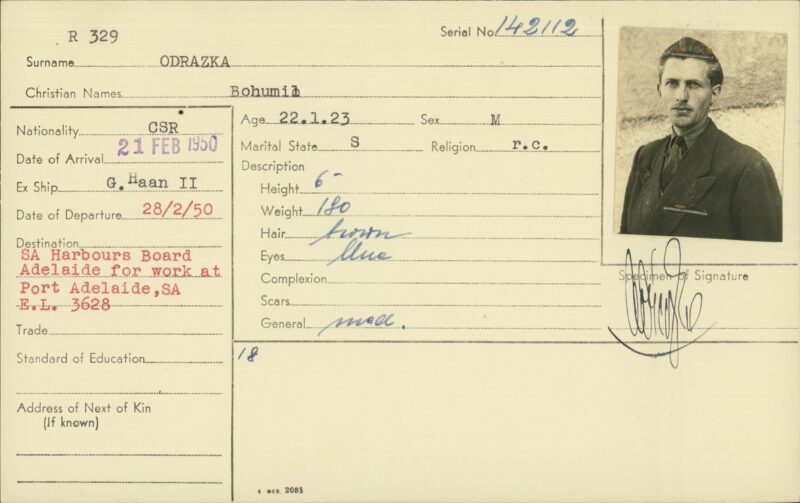 R 329
Serial No. 142112
Surname ODRAZKA
Christian Names Bohumil
Nationality CSR
Date of Arrival 21 FEB 1950
Ex Ship G.Haan II
Date of Departure 28/2/50
Destination
SA Harbours Board
Adelaide for work at
Port Adelaide,SA
E.L. 3628
Trade
Standard of Education
Address of Next of Kin
(If known)
Age 22.1.23 Sex M
Marital State S Religion r.c.
Description
Height 6-
Weight 180
Hair brown
Eyes blue
Complexion
Scars
General med.
Specimen of Signature
18
S MCD. 2085